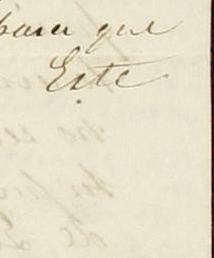 para que
Este